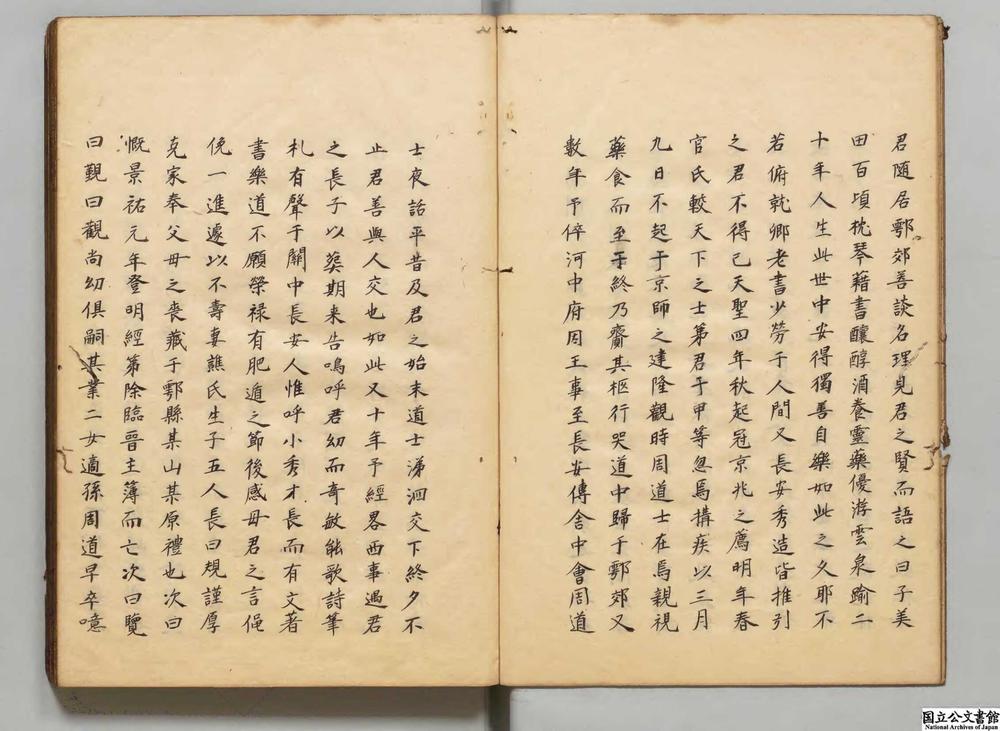 君随居鄠郊善談名理見君之賢而語之曰子美
田百頃枕琴藉書釀醇酒養靈藥優游雲泉踰二
十年人生此世中安得獨善自樂如此之久耶不
若俯就鄉老書少勞于人間又長安秀造皆推引
之君不得已天聖四年秋起冠京兆之薦明年春
官氏較天下之士第君于甲等忽焉搆疾以三月
九日不起于京師之建隆觀時周道士在焉親視
藥食而至于終乃齎其柩行哭道中歸于鄠郊又
數年予倅河中府因王事至長安傳舍中會周道
士夜話平昔及君之始末道士涕泗交下終夕不
止君善與人交也如此又十年予經畧西事遇君
之長子以葵期来告嗚呼君幼而奇敏能歌詩筆
札有聲于關中長安人惟呼小秀才長而有文著
書樂道不願榮禄有肥遁之節後感母君之言俛
俛一進遽以不壽妻譙氏生子五人長曰規謹厚
克家奉父母之喪藏于鄠縣某山某原禮也次曰
慨景祐元年登明經第除臨晉主薄而亡次曰覽
曰覲曰觀尚幼俱嗣其業二女適孫周道早卒噫
国立公文書館
National Archives of Japan